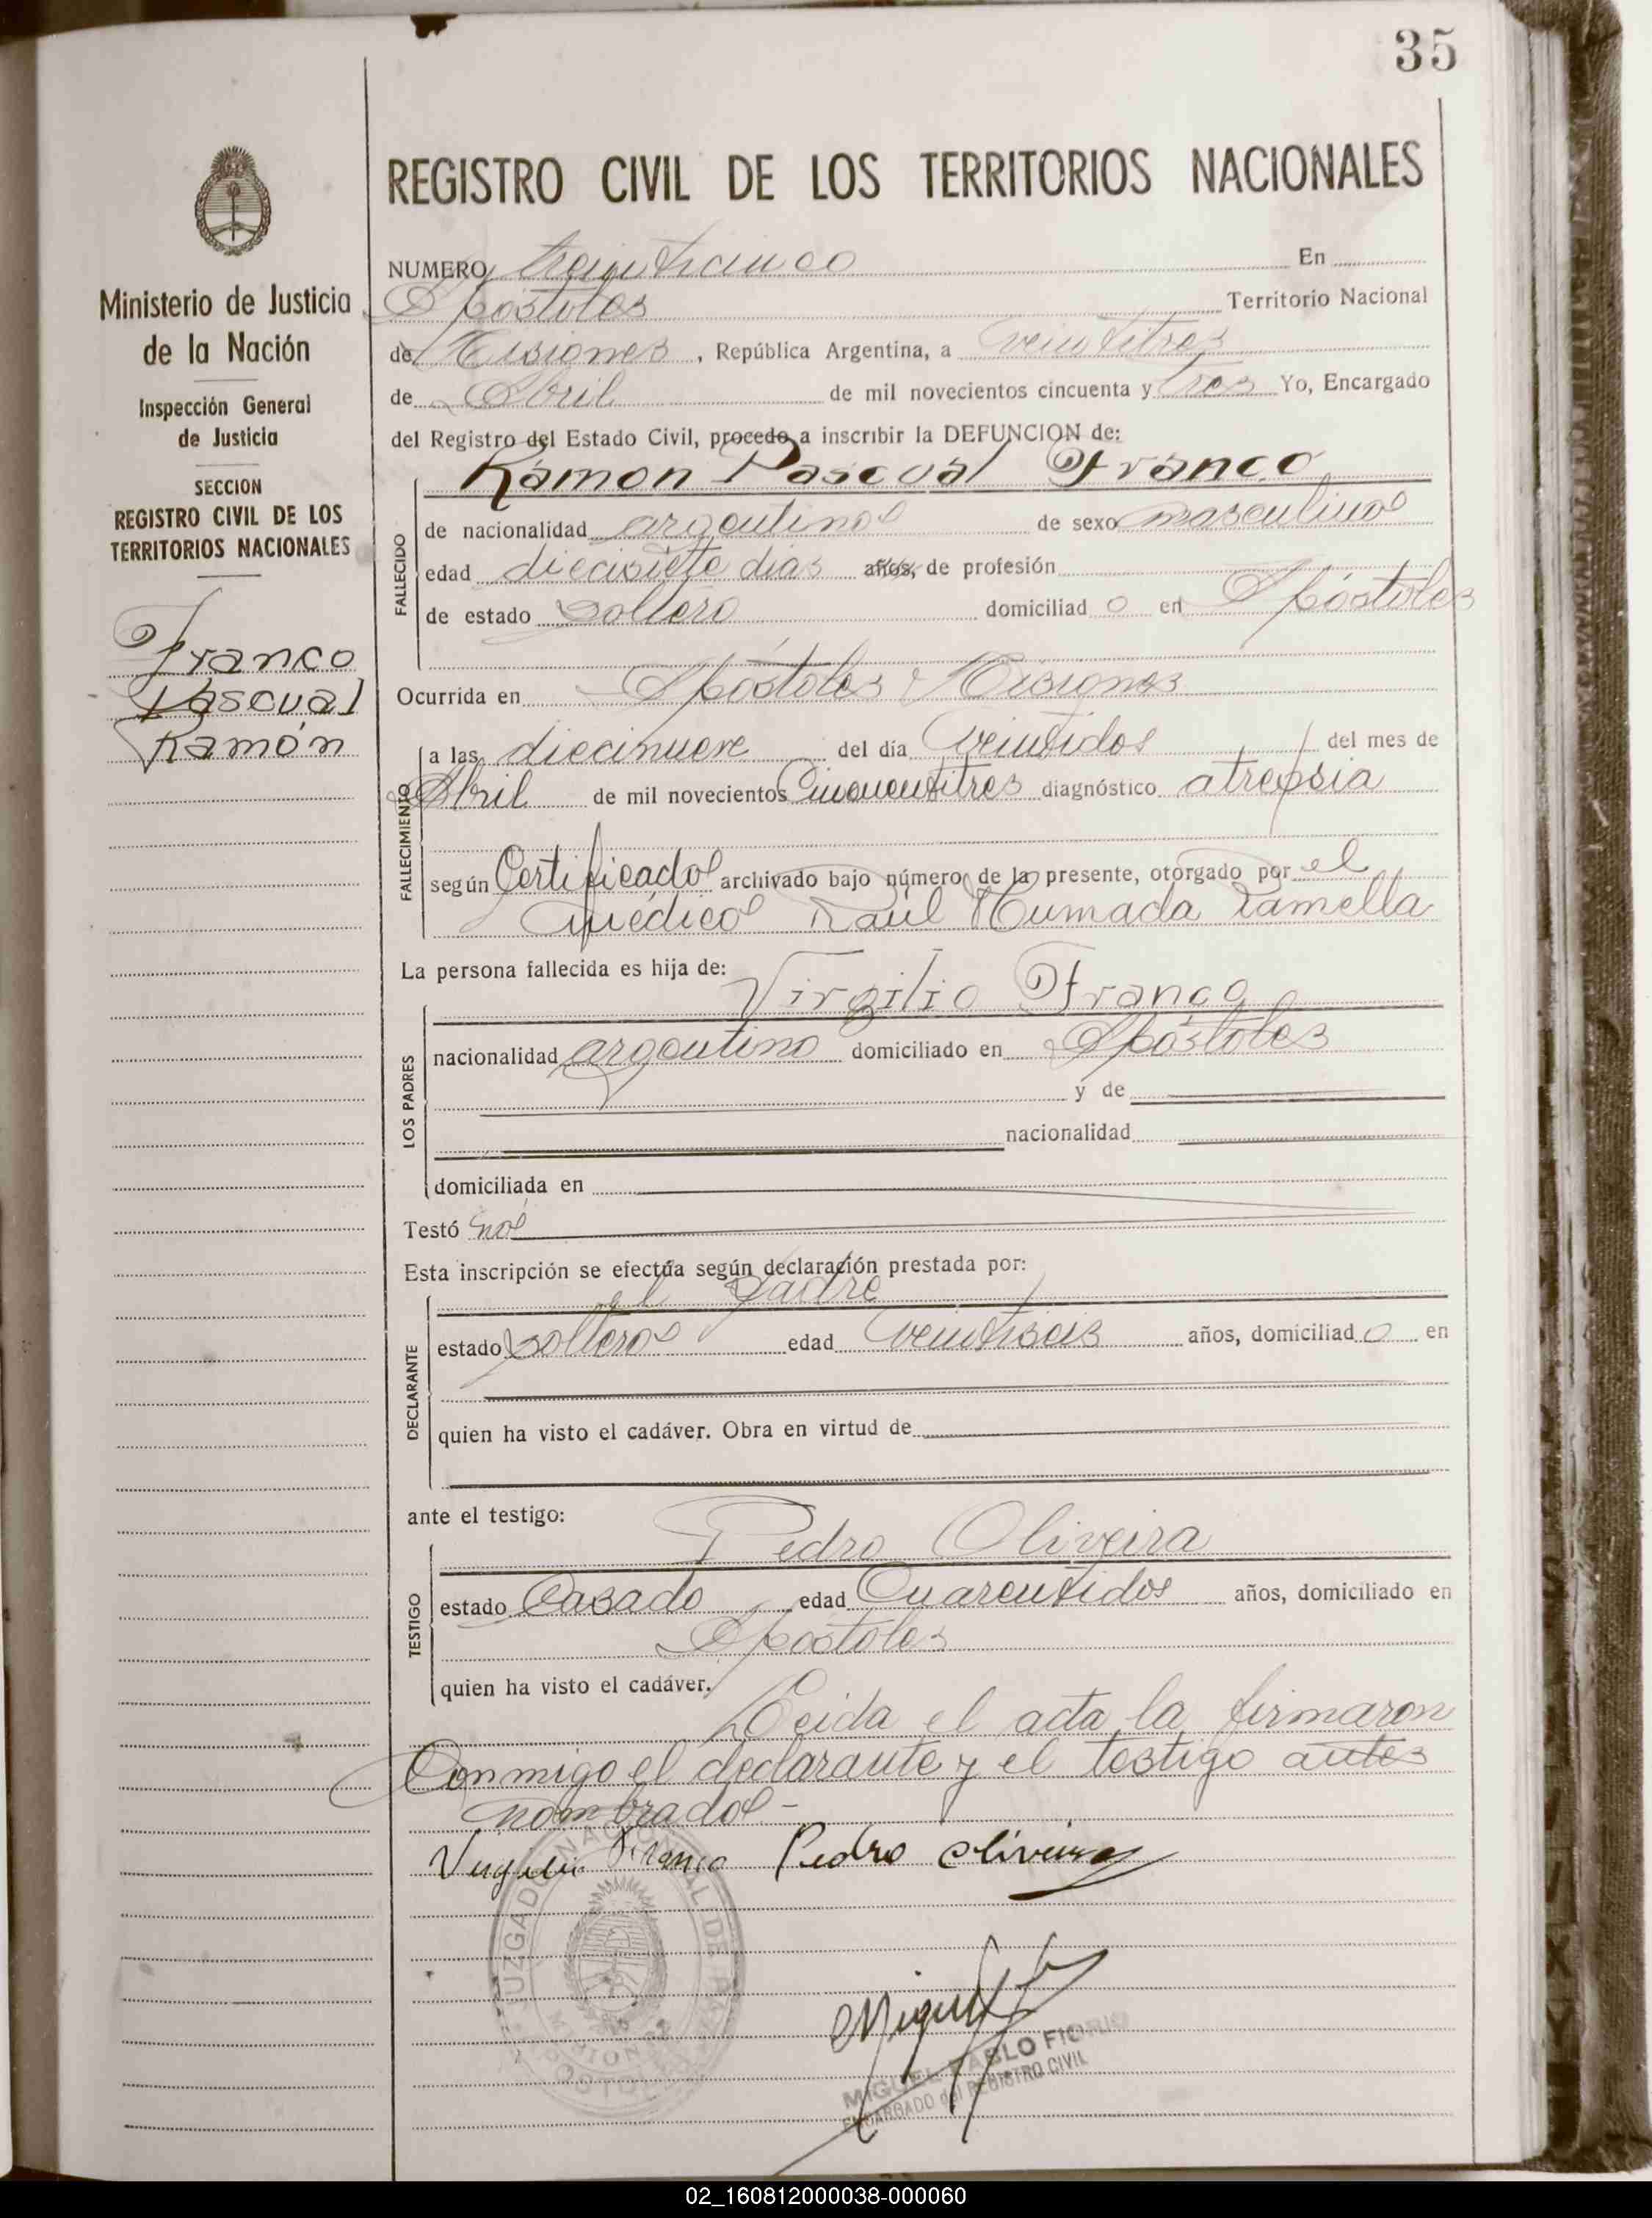 35
Ministerio de Justicia
de la Nación
Inspección General
de Justicia
SECCION
REGISTRO CIVIL DE LOS
TERRITORIOS NACIONALES
Franco
Pascual
Ramón
REGISTRO CIVIL DE LOS TERRITORIOS NACIONALES
NUMERO treinticinco En
Apóstoles Territorio Nacional
de Misiones, República Argentina, a veintitres
de Abril de mil novecientos cincuenta y tres Yo, Encargado
del Registro del Estado Civil, procedo a inscribir la DEFUNCION de:
Ramon Pascual Franco
FALLECIDO
de nacionalidad argentino de sexo masculino
edad diecisiete dias años, de profesión
de estado soltero domiciliad o en Apóstoles
Ocurrida en Apóstoles Misiones
FALLECIMIENTO
a las diecinueve del día veintidos del mes de
Abril de mil novecientos Cincuentitres diagnóstico atrepsia
según Certificado archivado bajo número de la presente, otorgado por el
médico Raúl Humada Ramella
La persona fallecida es hija de:
Virgilio Franco
LOS PADRES
nacionalidad argentino domiciliado en Apóstoles
y de
nacionalidad
domiciliada en
Testó no
Esta inscripción se efectúa según declaración prestada por:
el Padre
DECLARANTE
estado soltero edad veintiseis años, domiciliad o en
quien ha visto el cadáver. Obra en virtud de
ante el testigo:
Pedro Oliveira
TESTIGO
estado Casado edad Cuarentidos años, domiciliado en
Apóstoles
quien ha visto el cadáver.
Leida el acta la firmaron
Conmigo el declarante y el testigo antes
nombrado-
Virgilio Franco Pedro Oliveira
JUZGADO NACIONAL DE PAZ
MISIONES
Miguel
MIGUEL PABLO FIORIO
ENCARGADO del REGISTRO CIVIL
02_160812000038-000060